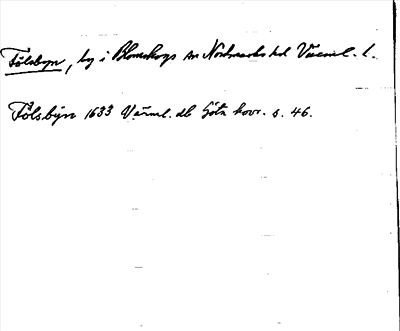 Fölsbyn, by i Blomskogs sn Nordmarks hd Värml. l.
Fölsbyn 1633 Värml. db Göta hovr. s. 46.